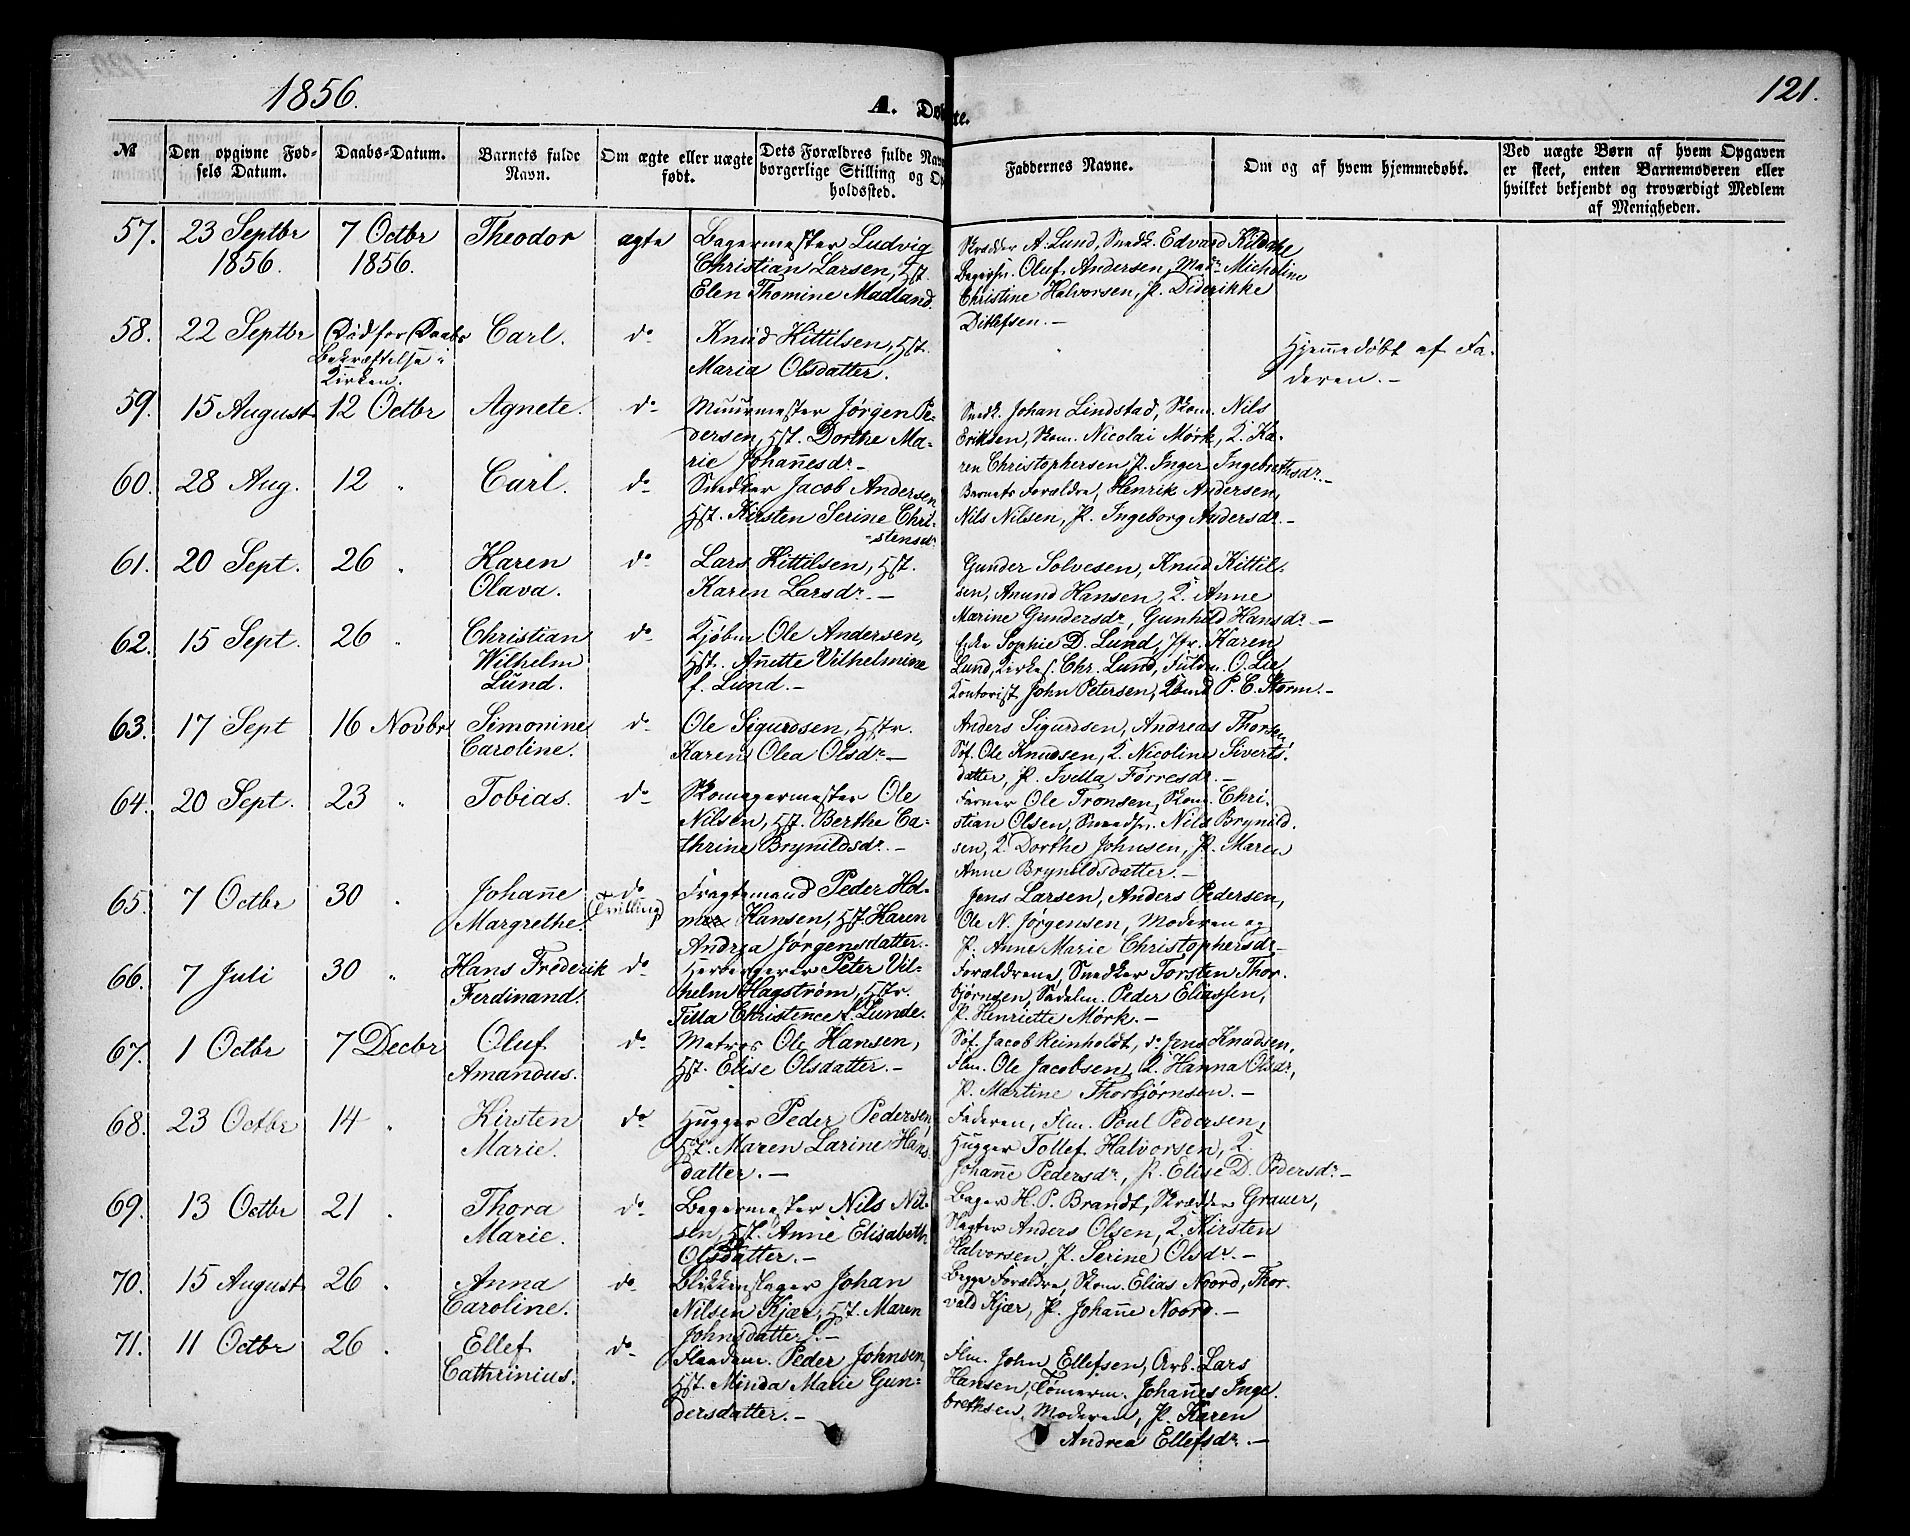 1856.
A. Døbte.
121.
№
Den opgivne Fødsels Datum.
Daabs-Datum.
Barnets fulde Navn.
Om ægte eller uægte født.
Dets Forældres fulde Navn, borgerlige Stilling og Opholdssted.
Faddernes Navne.
Om og af hvem hjemmedøbt.
Ved uægte Børn af hvem Opgaven
er skeet, enten Barnemøderen eller
hvilket bekjendt og troværdigt Medlem
af Menigheden.
57. 23 Septbr 1856. 7 Octbr 1856. Theodor ægte
Bagermester Ludvig
Christian Larsen, Hst.
Elen Thomine Madland.
Skrædder A. Lund, Snedk. Edvard
Oluf Andersen, Mad. Micholine
Christine Halvorsen, P. Diderikke
Ditlefsen. —
58. 22 Septbr Død før Daabs Bekræftelse i Kirken. Carl. do
Knud Kittilsen, Hst.
Maria Olsdatter.
Hjemmedøbt af Fa-
deren. —
59. 15 August 12 Octbr Agnete. do
Muurmester Jørgen Pe-
dersen, Hst. Dorthe Ma-
rie Johannesdr. —
Snedk. Johan Lindstad, Skom. Nils
Eriksen, Skom. Nicolai Mørk, K. Ka-
ren Christophersen P. Inger Ingebrethsdr. —
60. 28 Aug. 12 " Carl. do
Snedker Jacob Andersen
Hst. Kirsten Serine Chri-
stensdr.
Barnets Forældre, Henrik Andersen,
Nils Nilsen, P. Ingeborg Andersdr. —
61. 20 Sept. 26 " Karen Olava. do
Lars Kittilsen, Hst.
Karen Larsdr. —
Gunder Solvesen, Knud Kittil-
sen, Anund Hansen, K. Anne
Marine Gundersdr, Gunhild Hansdr. —
62. 15 Sept. 26 " Christian Wilhelm Lund. do
Kjøbm. Ole Andersen,
Hst. Anette Vilhelmine
f. Lund. —
Sophie D. Lund, Jfr. Karen
Lund, Kirkes. Chr. Lund, Fuldm. O. Lie
Kontorist John Petersen, P. C. Storm. —
63. 17 Sept 16 Novbr Simonine Caroline. do
Ole Sigurdsen, Hstr.
Karen Olea Olsdr. —
Anders Sigurdsen, Andreas Thorsen
Søf. Ole Knudsen, K. Nicoline Siverts-
datter, P. Førresdr. —
64. 20 Sept. 23 " Tobias. do
Skomagermester Ole
Nilsen, Hst. Berthe Ca-
thrine Brynildsdr. —
Farver Ole Tronsen, Skom. Chri-
stian Olsen, Smedsv. Nils Brynild-
sen, K. Dorthe Johnsen, P. Maren
Anne Brynildsdatter. —
65. 7 Octbr 30 " Johanne Margrethe. do (Tvilling)
Fragtemand Peder Hol-
Hansen, Hst. Karen
Andrea Jørgensdatter.
Jens Larsen, Anders Pedersen,
Ole N. Jørgensen, Moderen og
P. Anne Marie Christophersdr. —
66. 7 Juli 30 " Hans Frederik Ferdinand. do
Herbergerer Peter Vil-
helm Hagstrøm, Hstr.
Tilla Christence f. Lunde.
Forældrene, Snedker Torsten Thor-
bjørnsen, Sadelm. Peder Eliassen,
P. Henriette Mørk. —
67. 1 Octbr 7 Decbr Oluf Amandus. do
Matros Ole Hansen,
Hst. Elise Olsdatter. —
Søf. Jacob Reinholdt, do Jens Knudsen,
Flm. Ole Jacobsen, K. Hanna Olsdr,
P. Martine Thorbjørnsen. —
68. 23 Octbr 14 " Kirsten Marie. do
Hugger Peder Pedersen,
Hst. Maren Larine Hans-
datter. —
Faderen, Flm. Poul Pedersen,
Hugger Tollef Halvorsen, K.
Johanne Pedersdr, P. Elise D. Pedersdr. —
69. 13 Octbr 21 " Thora Marie. do
Bagermester Nils Nil-
sen, Hst. Anne Elisabeth
Olsdatter. —
Bager H. P. Brandt, Skrædder Grauer,
Slagter Anders Olsen, K. Kirsten
Halvorsen, P. Serine Olsdr. —
70. 15 August 26 " Anna Caroline. do
Blikkenslager Johan
Nilsen Kjær, Hst. Maren
Johnsdatter. —
Begge Forældre, Skom. Elias Noord, Thor-
vald Kjær, P. Johanne Noord. —
71. 11 Octbr 26 " Ellef Cathrinius. do
Peder Johnsen,
Hst. Minda Marie Gun-
dersdatter. —
Flm. John Ellefsen, Arb. Lars
Hansen, Tømerm. Johannes Inge-
brethsen, Moderen, P. Karen
Andrea Ellefsdr. —